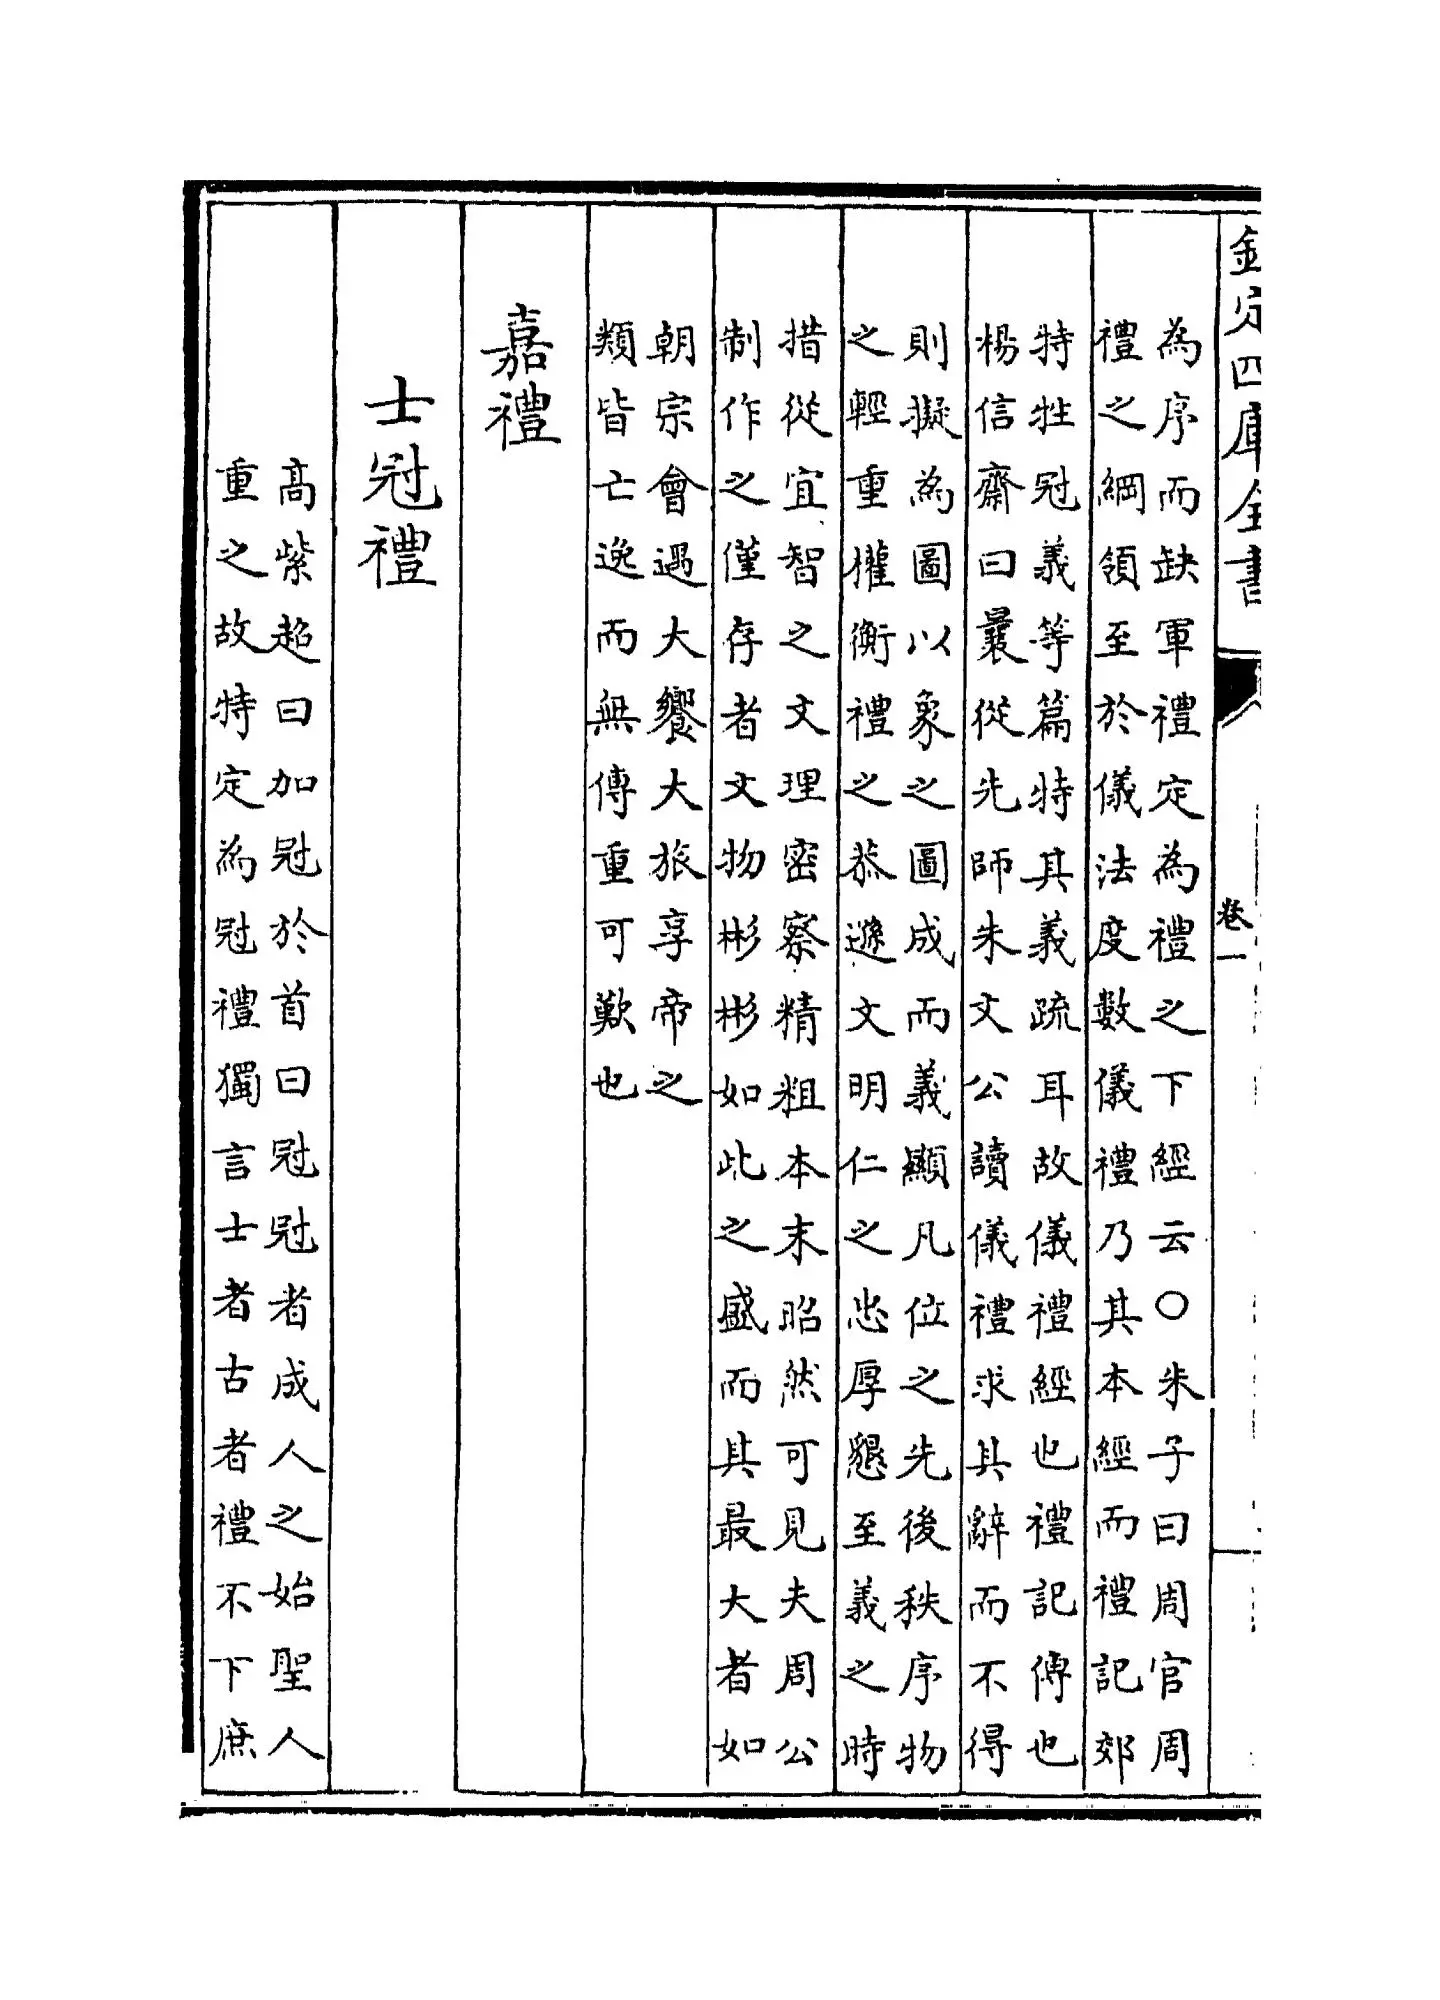 欽定四庫全書
卷一
為序而缺軍禮定為禮之下經云〇朱子曰周官周
禮之綱領至於儀法度數儀禮乃其本經而禮記郊
特牲冠義等篇特其義疏耳故儀禮禮經也禮記傳也
楊信齋曰曩從先師朱文公讀儀禮求其辭而不得
則擬為圖以象之圖成而義顯凡位之先後秩序物
之輕重權衡禮之恭遜文明仁之忠厚懇至義之時
措從宜智之文理密察精粗本末昭然可見夫周公
制作之僅存者文物彬彬如此之盛而其最大者如
朝宗會遇大饗大旅享帝之
類皆亡逸而無傳重可歎也
嘉禮
士冠禮
高紫超曰加冠於首曰冠冠者成人之始聖人
重之故特定為冠禮獨言士者古者禮不下庶